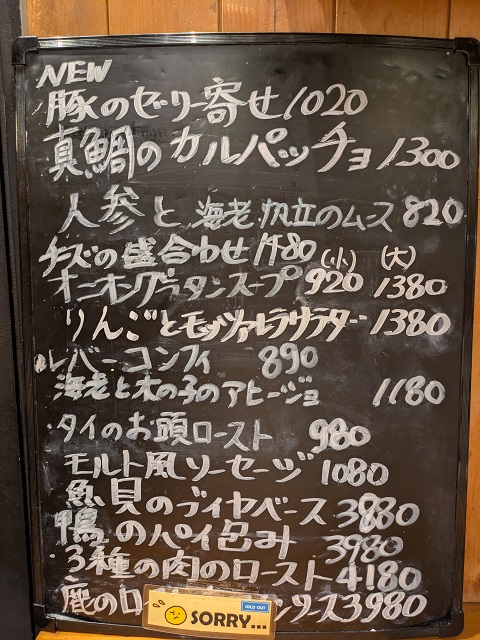 NEW
豚のゼリー寄せ 1020
真鯛のカルパッチョ 1300
人参と海老帆立のムース 820
チーズの盛合わせ 1480 (小) (大)
オニオングラタンスープ 920 1380
りんごとモッツァレラサラダー 1380
レバーコンフィ 890
海老と木の子のアヒージョ 1180
・タイのお頭ロースト 980
モルト風ソーセージ 1080
魚貝のブイヤベース 3880
鴨のパイ包み 3980
・3種の肉のロースト 4180
鹿のロ ソース 3980
SOLD OUT
SORRY...